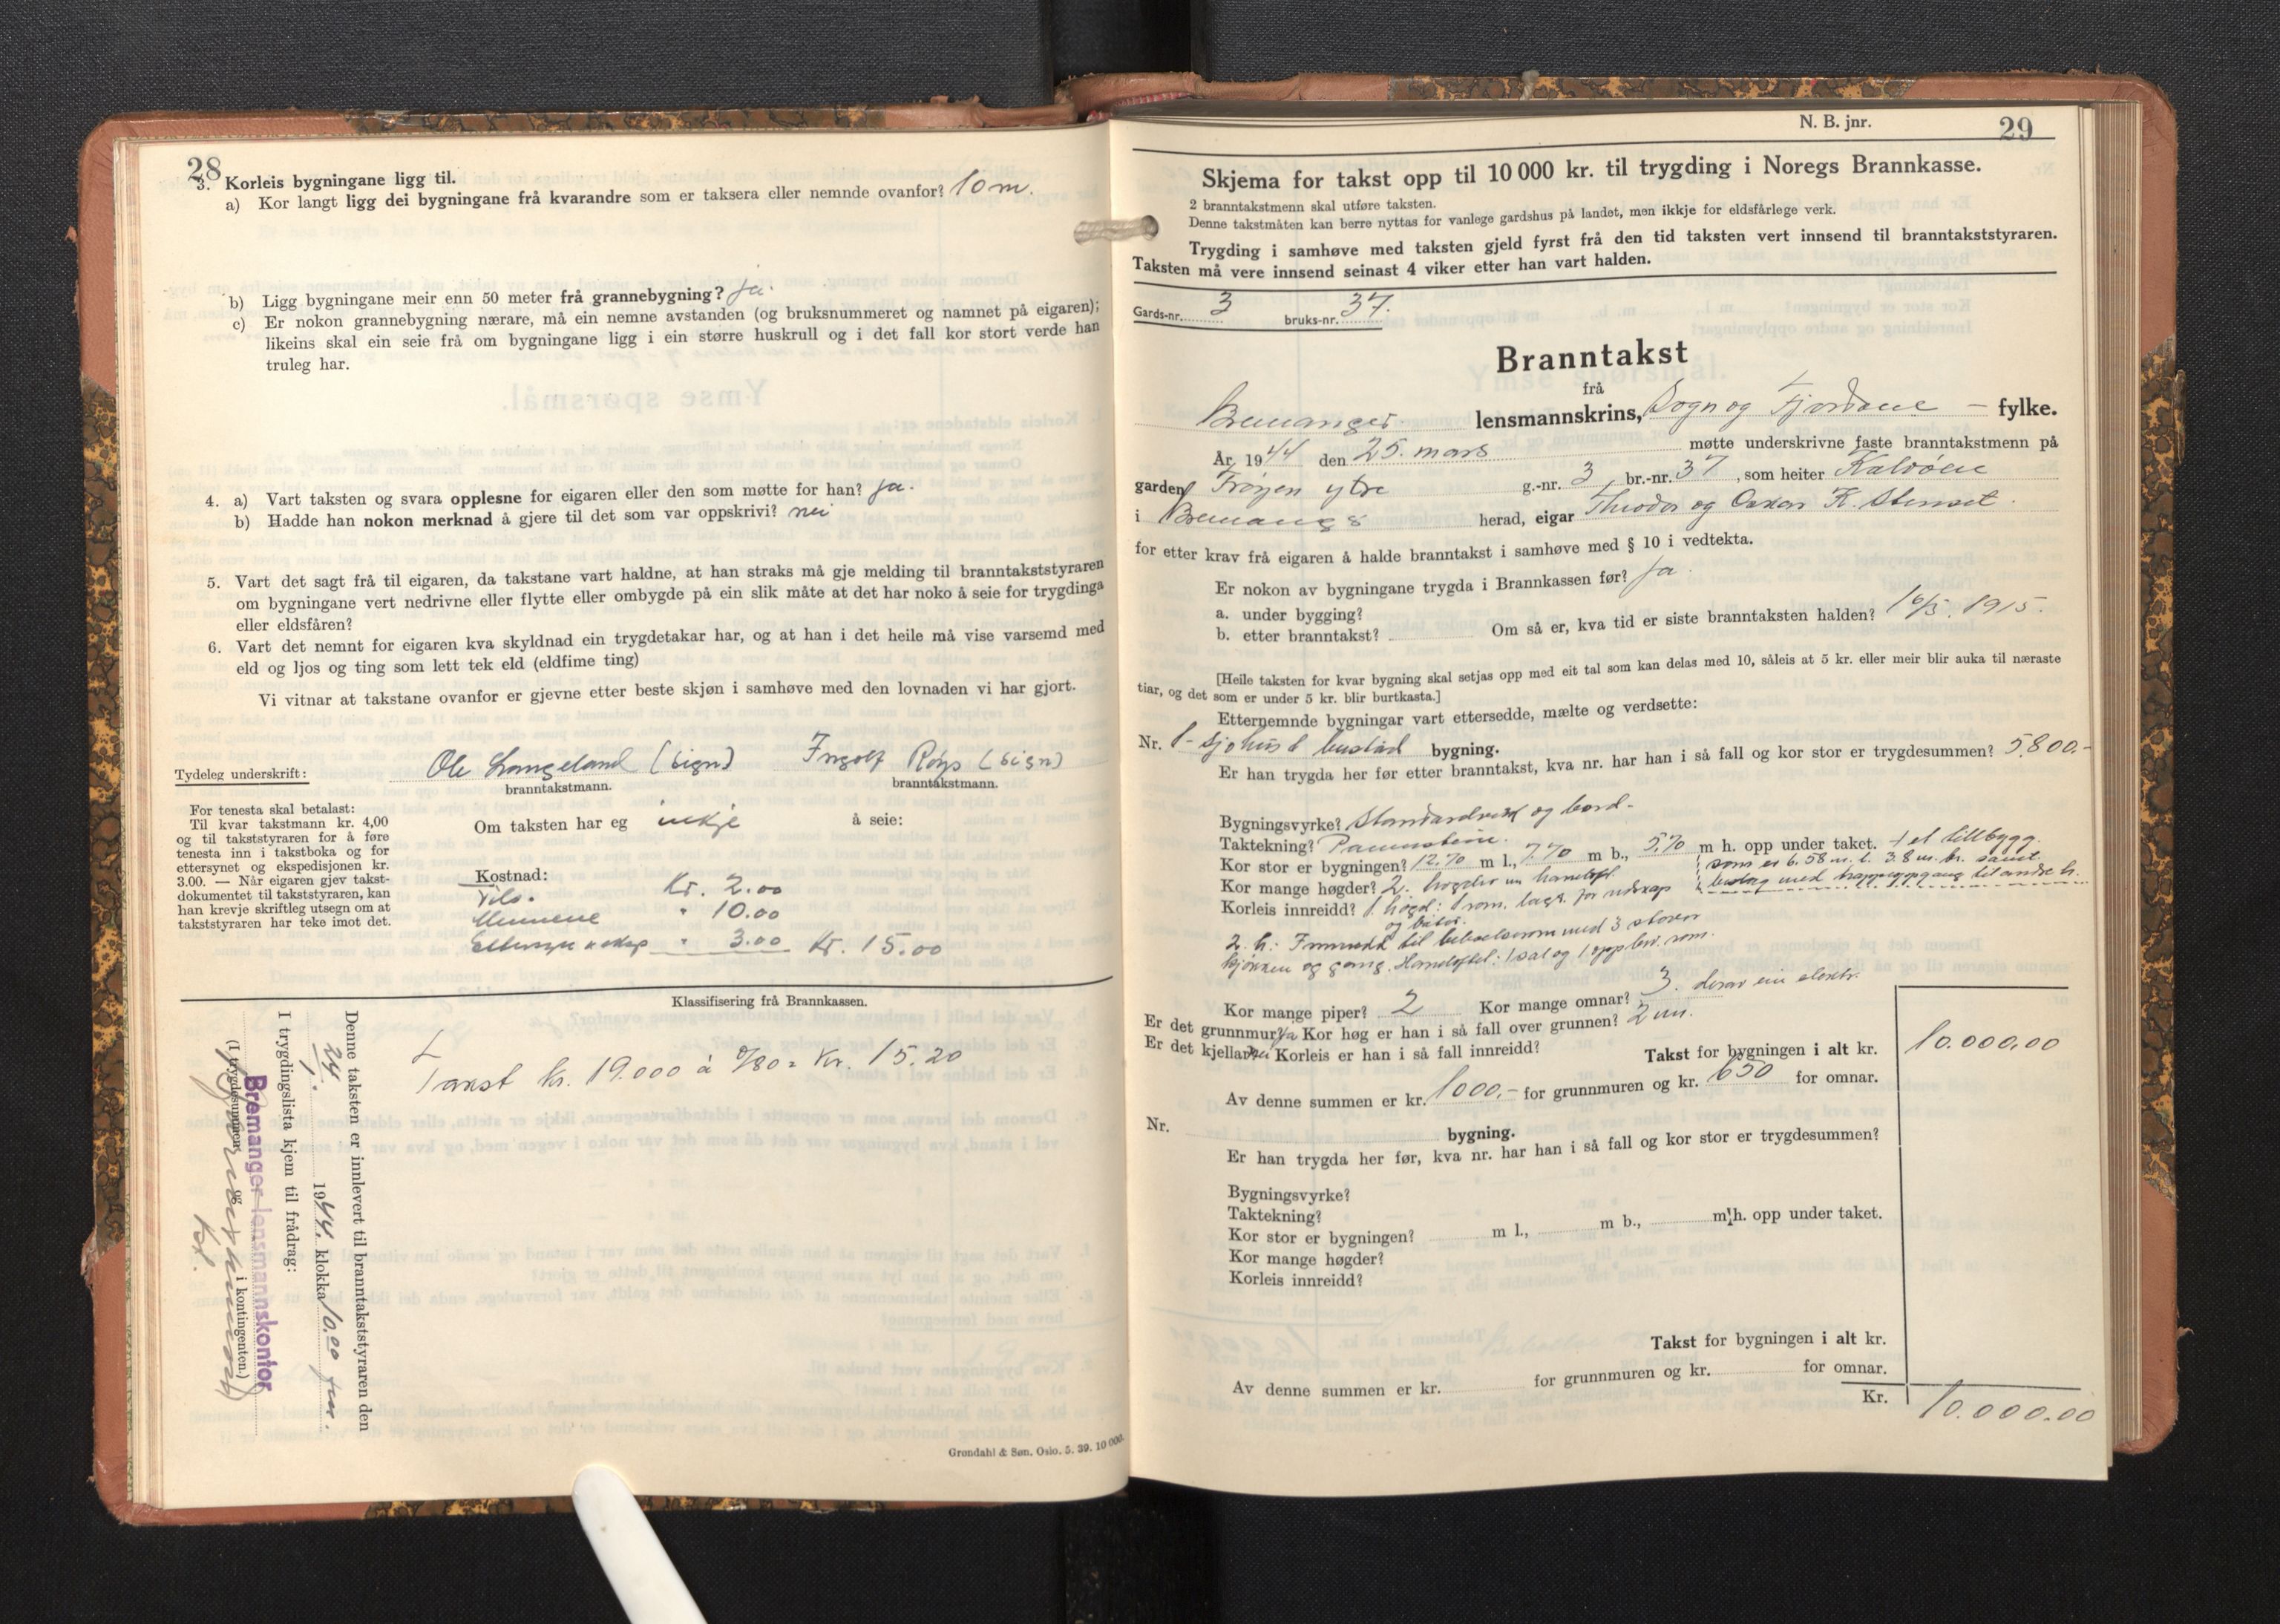 28
3. Korleis bygningane ligg til.
a) Kor langt ligg dei bygningane frå kvarandre som er taksera eller nemnde ovanfor? 10 m.
b) Ligg bygningane meir enn 50 meter frå grannebygning? ja.
c) Er nokon grannebygning nærare, må ein nemne avstanden (og bruksnummeret og namnet på eigaren);
likeins skal ein seie frå om bygningane ligg i ein større huskrull og i det fall kor stort verde han
truleg har.
4. a) Vart taksten og svara opplesne for eigaren eller den som møtte for han? ja.
b) Hadde han nokon merknad å gjere til det som var oppskrivi? nei
5. Vart det sagt frå til eigaren, da takstane vart haldne, at han straks må gje melding til branntakststyraren
om bygningane vert nedrivne eller flytte eller ombygde på ein slik måte at det har noko å seie for trygdinga
eller eldsfåren?
6. Vart det nemnt for eigaren kva skyldnad ein trygdetakar har, og at han i det heile må vise varsemd med
eld og ljos og ting som lett tek eld (eldfime ting)
Vi vitnar at takstane ovanfor er gjevne etter beste skjøn i samhøve med den lovnaden vi har gjort.
Tydeleg underskrift: Ole Langeland (sign) Ingolf Røys (sign)
branntakstmann. branntakstmann.
For tenesta skal betalast:
Til kvar takstmann kr. 4,00
og til takststyraren for å føre
tenesta inn i takstboka og for
ettersynet og ekspedisjonen kr.
3.00. — Når eigaren gjev takst-
dokumentet til takststyraren, kan
han krevje skriftleg utsegn om at
takststyraren har teke imot det.
Om taksten har eg inkje å seie:
Kostnad:
Kr. 2.00
Mennene " 10.00
" 3.00 Kr. 15.00
Klassifisering frå Brannkassen.
Takst kr. 19.000 à 0/80 = Kr. 15.20
Denne taksten er innlevert til branntakststyraren den
24/1. 1944. klokka 10.00 fm.
I trygdingslista kjem til frådrag:
Bremanger lensmannskontor
(I trygdesummen og i kontingenten.)
Grøndahl & Søn. Oslo. 5. 39. 10 000.
N. B. jnr. 29
Skjema for takst opp til 10 000 kr. til trygding i Noregs Brannkasse.
2 branntakstmenn skal utføre taksten.
Denne takstmåten kan berre nyttas for vanlege gardshus på landet, men ikkje for eldsfårlege verk.
Trygding i samhøve med taksten gjeld fyrst frå den tid taksten vert innsend til branntakststyraren.
Taksten må vere innsend seinast 4 viker etter han vart halden.
Gards-nr. 3 bruks-nr. 37.
Branntakst
frå
Bremanger lensmannskrins, Sogn og Fjordane – fylke.
År 1944 den 25. mars møtte underskrivne faste branntakstmenn på
garden Frøyen ytre g.-nr. 3, br.-nr. 37, som heiter Kalvöen
i Bremanger herad, eigar Theodor og Oskar K. Stenset.
for etter krav frå eigaren å halde branntakst i samhøve med § 10 i vedtekta.
Er nokon av bygningane trygda i Brannkassen før? ja
a. under bygging?
b. etter branntakst? Om så er, kva tid er siste branntaksten halden? 16/5. 1915.
[Heile taksten for kvar bygning skal setjas opp med eit tal som kan delas med 10, såleis at 5 kr. eller meir blir auka til næraste
tiar, og det som er under 5 kr. blir burtkasta.]
Etternemnde bygningar vart ettersedde, mælte og verdsette:
Nr. 1 – sjøhus & bustad bygning.
Er han trygda her før etter branntakst, kva nr. har han i så fall og kor stor er trygdesummen? 5800.-
Bygningsvyrke? Standardverk og bord.
Taktekning? Pannestein.
Kor stor er bygningen? 12.70 m l., 7.70 m b., 5.70 m h. opp under taket. + et tilbygg.
som er 6.58 m. l. 3.8 m. br. samt
med trappeoppgang til andre h.
Kor mange høgder? 2. høgder m hameloft
Korleis innreidd? 1. høgd: 1 rom. lagr. for reiskap
og båter.
2. h.: Innredd til beboelsesrom med 3 stover
kjøkken og gang. Hameloftet: 1 sal og 1 oppbev. rom.
Kor mange piper? 2 Kor mange omnar? 3. derav ein elektr.
Er det grunnmur? ja Kor høg er han i så fall over grunnen? 2 m.
Er det kjellar? nei Korleis er han i så fall innreidd?
Takst for bygningen i alt kr. 10.000,00
Av denne summen er kr. 1000,- for grunnmuren og kr. 650 for omnar.
Nr. bygning.
Er han trygda her før, kva nr. har han i så fall og kor stor er trygdesummen?
Bygningsvyrke?
Taktekning?
Kor stor er bygningen? m l., m b., m h. opp under taket.
Kor mange høgder?
Korleis innreidd?
Takst for bygningen i alt kr.
Av denne summen er kr. for grunnmuren og kr. for omnar.
Kr. 10.000.00